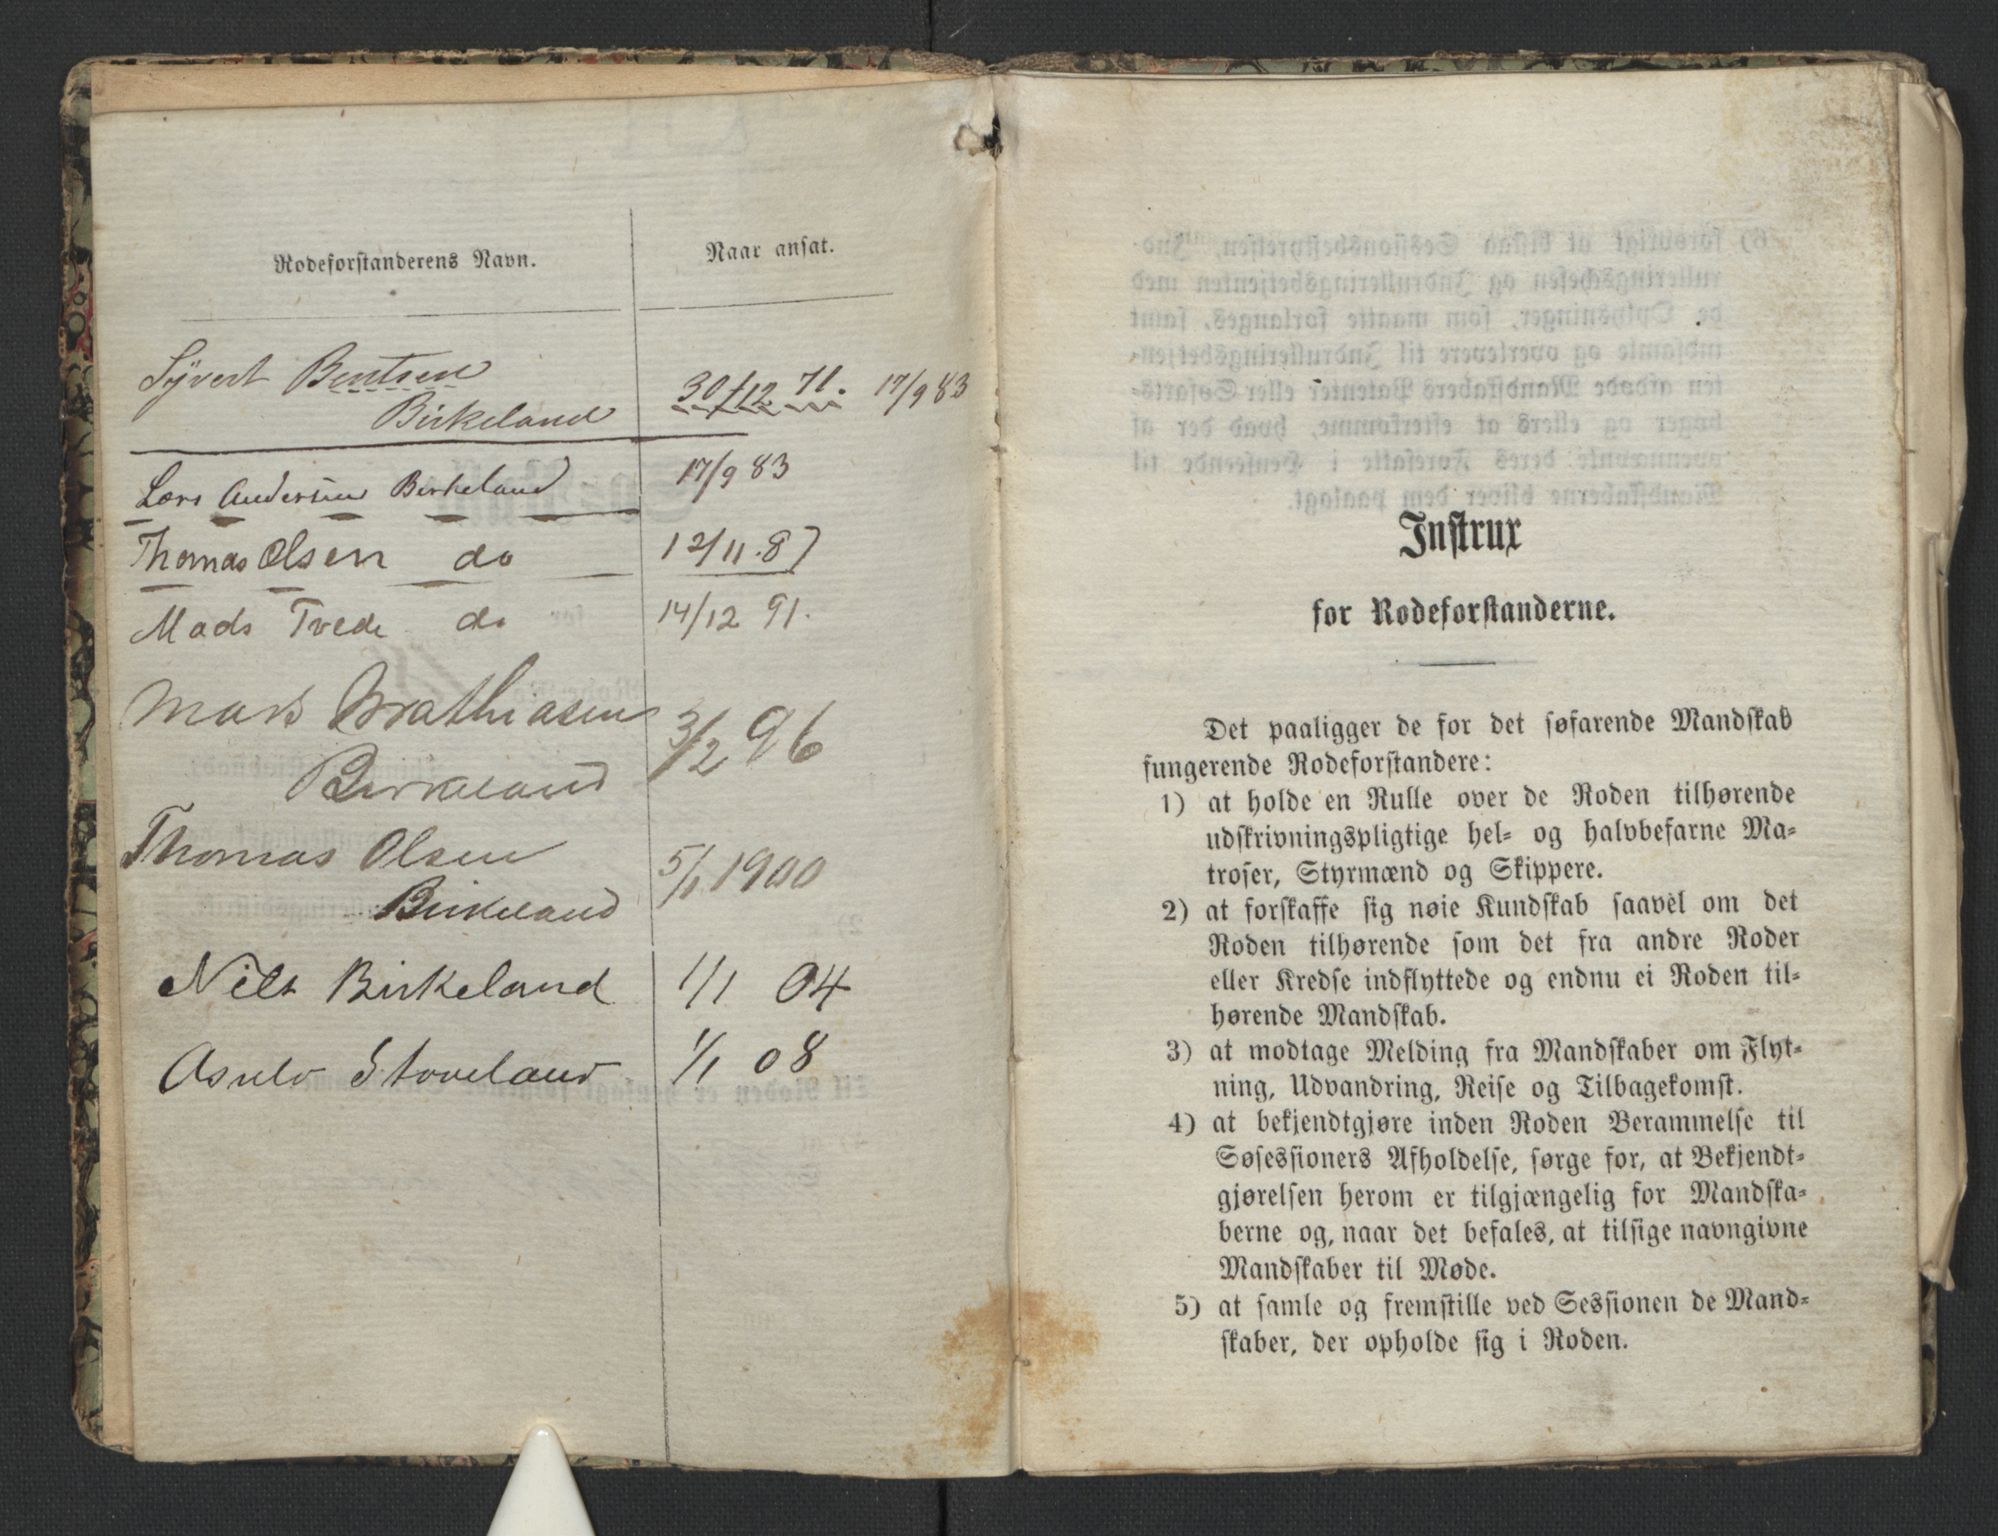 Rodeforstanderens Navn. Naar ansat.
Syvert Bentsen
Birkeland 30/12 71. 17/9 83
Lars Andersen Birkeland 17/9 83
Thomas Olsen do 12/11.87
Mads Tvede do 14/12 91.
Mads Mathiasen
Birkeland 3/2 96
Thomas Olsen
Birkeland 5/1 1900
Nils Birkeland 1/1 04
Asulv Stoveland 1/1 08
Instrux
for Rodeforstanderne.
Det paaligger de for det søfarende Mandskab
fungerende Rodeforstandere:
1) at holde en Rulle over de Roden tilhørende
udskrivningspligtige hel- og halvbefarne Ma-
troser, Styrmænd og Skippere.
2) at forskaffe sig nøie Kundskab saavel om det
Roden tilhørende som det fra andre Roder
eller Kredse indflyttede og endnu ei Roden til-
hørende Mandskab.
3) at modtage Melding fra Mandskaber om Flyt-
ning, Udvandring, Reise og Tilbagekomst.
4) at bekjendtgjøre inden Roden Berammelse til
Søsessioners Afholdelse, sørge for, at Bekjendt-
gjørelsen herom er tilgjængelig for Mandska-
berne og, naar det befales, at tilsige navngivne
Mandskaber til Møde.
5) at samle og fremstille ved Sessionen de Mand-
skaber, der opholde sig i Roden.